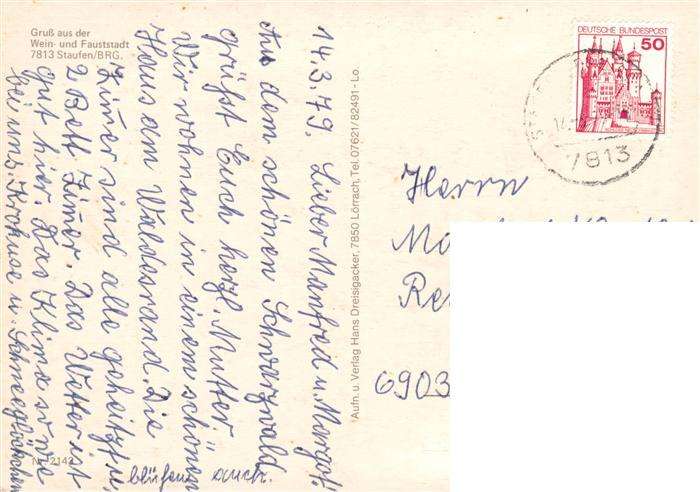 Gruß aus der
Wein- und Fauststadt
7813 Staufen/BRG.
14.3.79. Lieber Manfred u. Margot!
Aus dem schönen Schwarzwald
grüßt Euch herzl. Mutter.
Wir wohnen in einem schönen
Haus am Waldesrand. Die
Zimer sind alle geheitzt u.
2 Bett Zimer. Das Wetter ist
gut hier. Das Klima sowie
bei uns. Krokuse u. Schneeglöckchen
blühen auch.
Nr. 2142
Aufn. u. Verlag Hans Dreisigacker, 7850 Lörrach, Tel. 07621/82491 - Lo
DEUTSCHE BUNDESPOST
50
7813
Herrn
6903